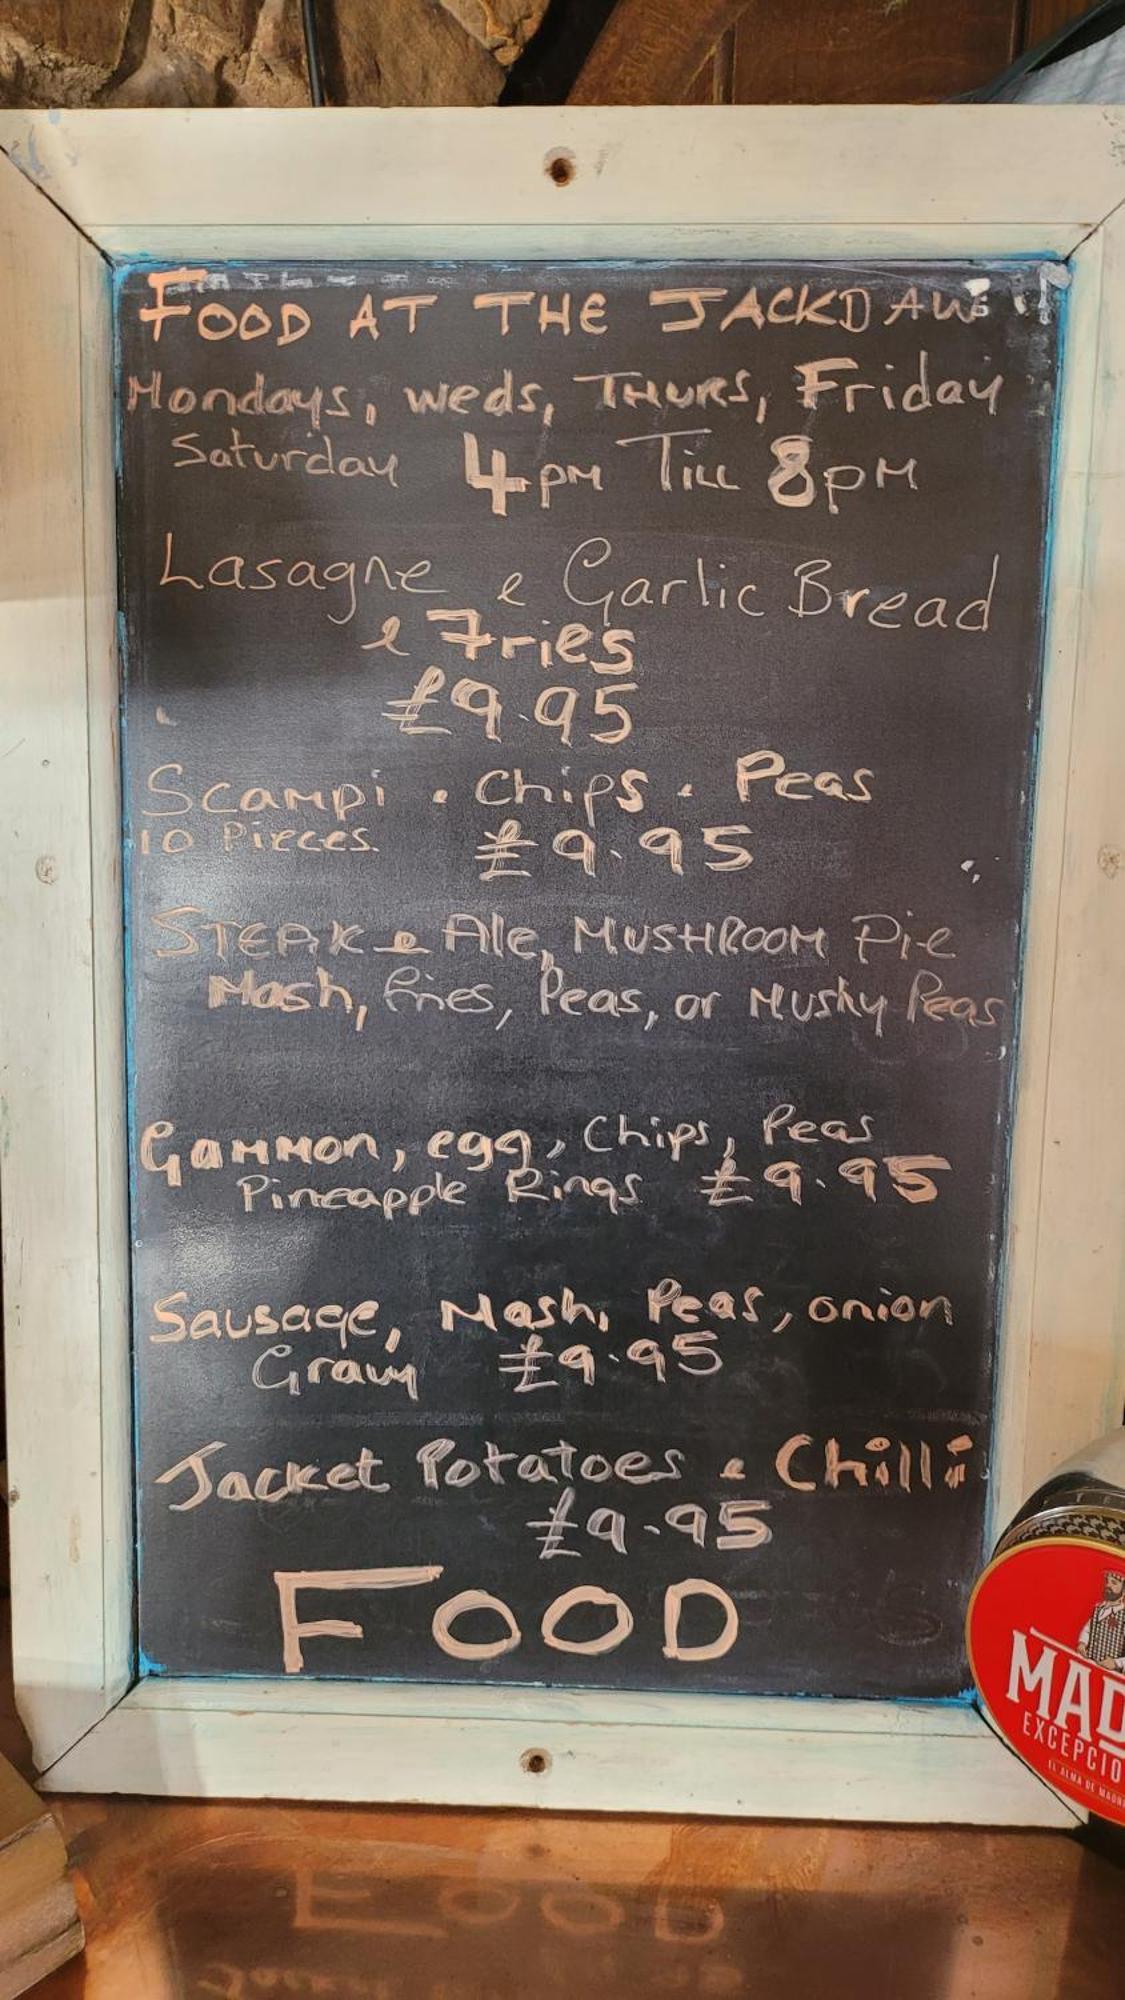 FOOD AT THE JACKDAW
Mondays, weds, THURS, Friday
Saturday 4pm Till 8pm
Lasagne & Garlic Bread
& Fries
£9.95
Scampi . Chips . Peas
10 Pieces. £9.95
STEAK & Ale, MUSHROOM Pie
Mash, fries, Peas, or Mushy Peas
Gammon, egg, Chips, Peas
Pineapple Rings £9.95
Sausage, Mash, Peas, onion
Gravy £9.95
Jacket Potatoes & Chilli
£9.95
FOOD
MAD
EXCEPCIO
EL ALMA DE MADR